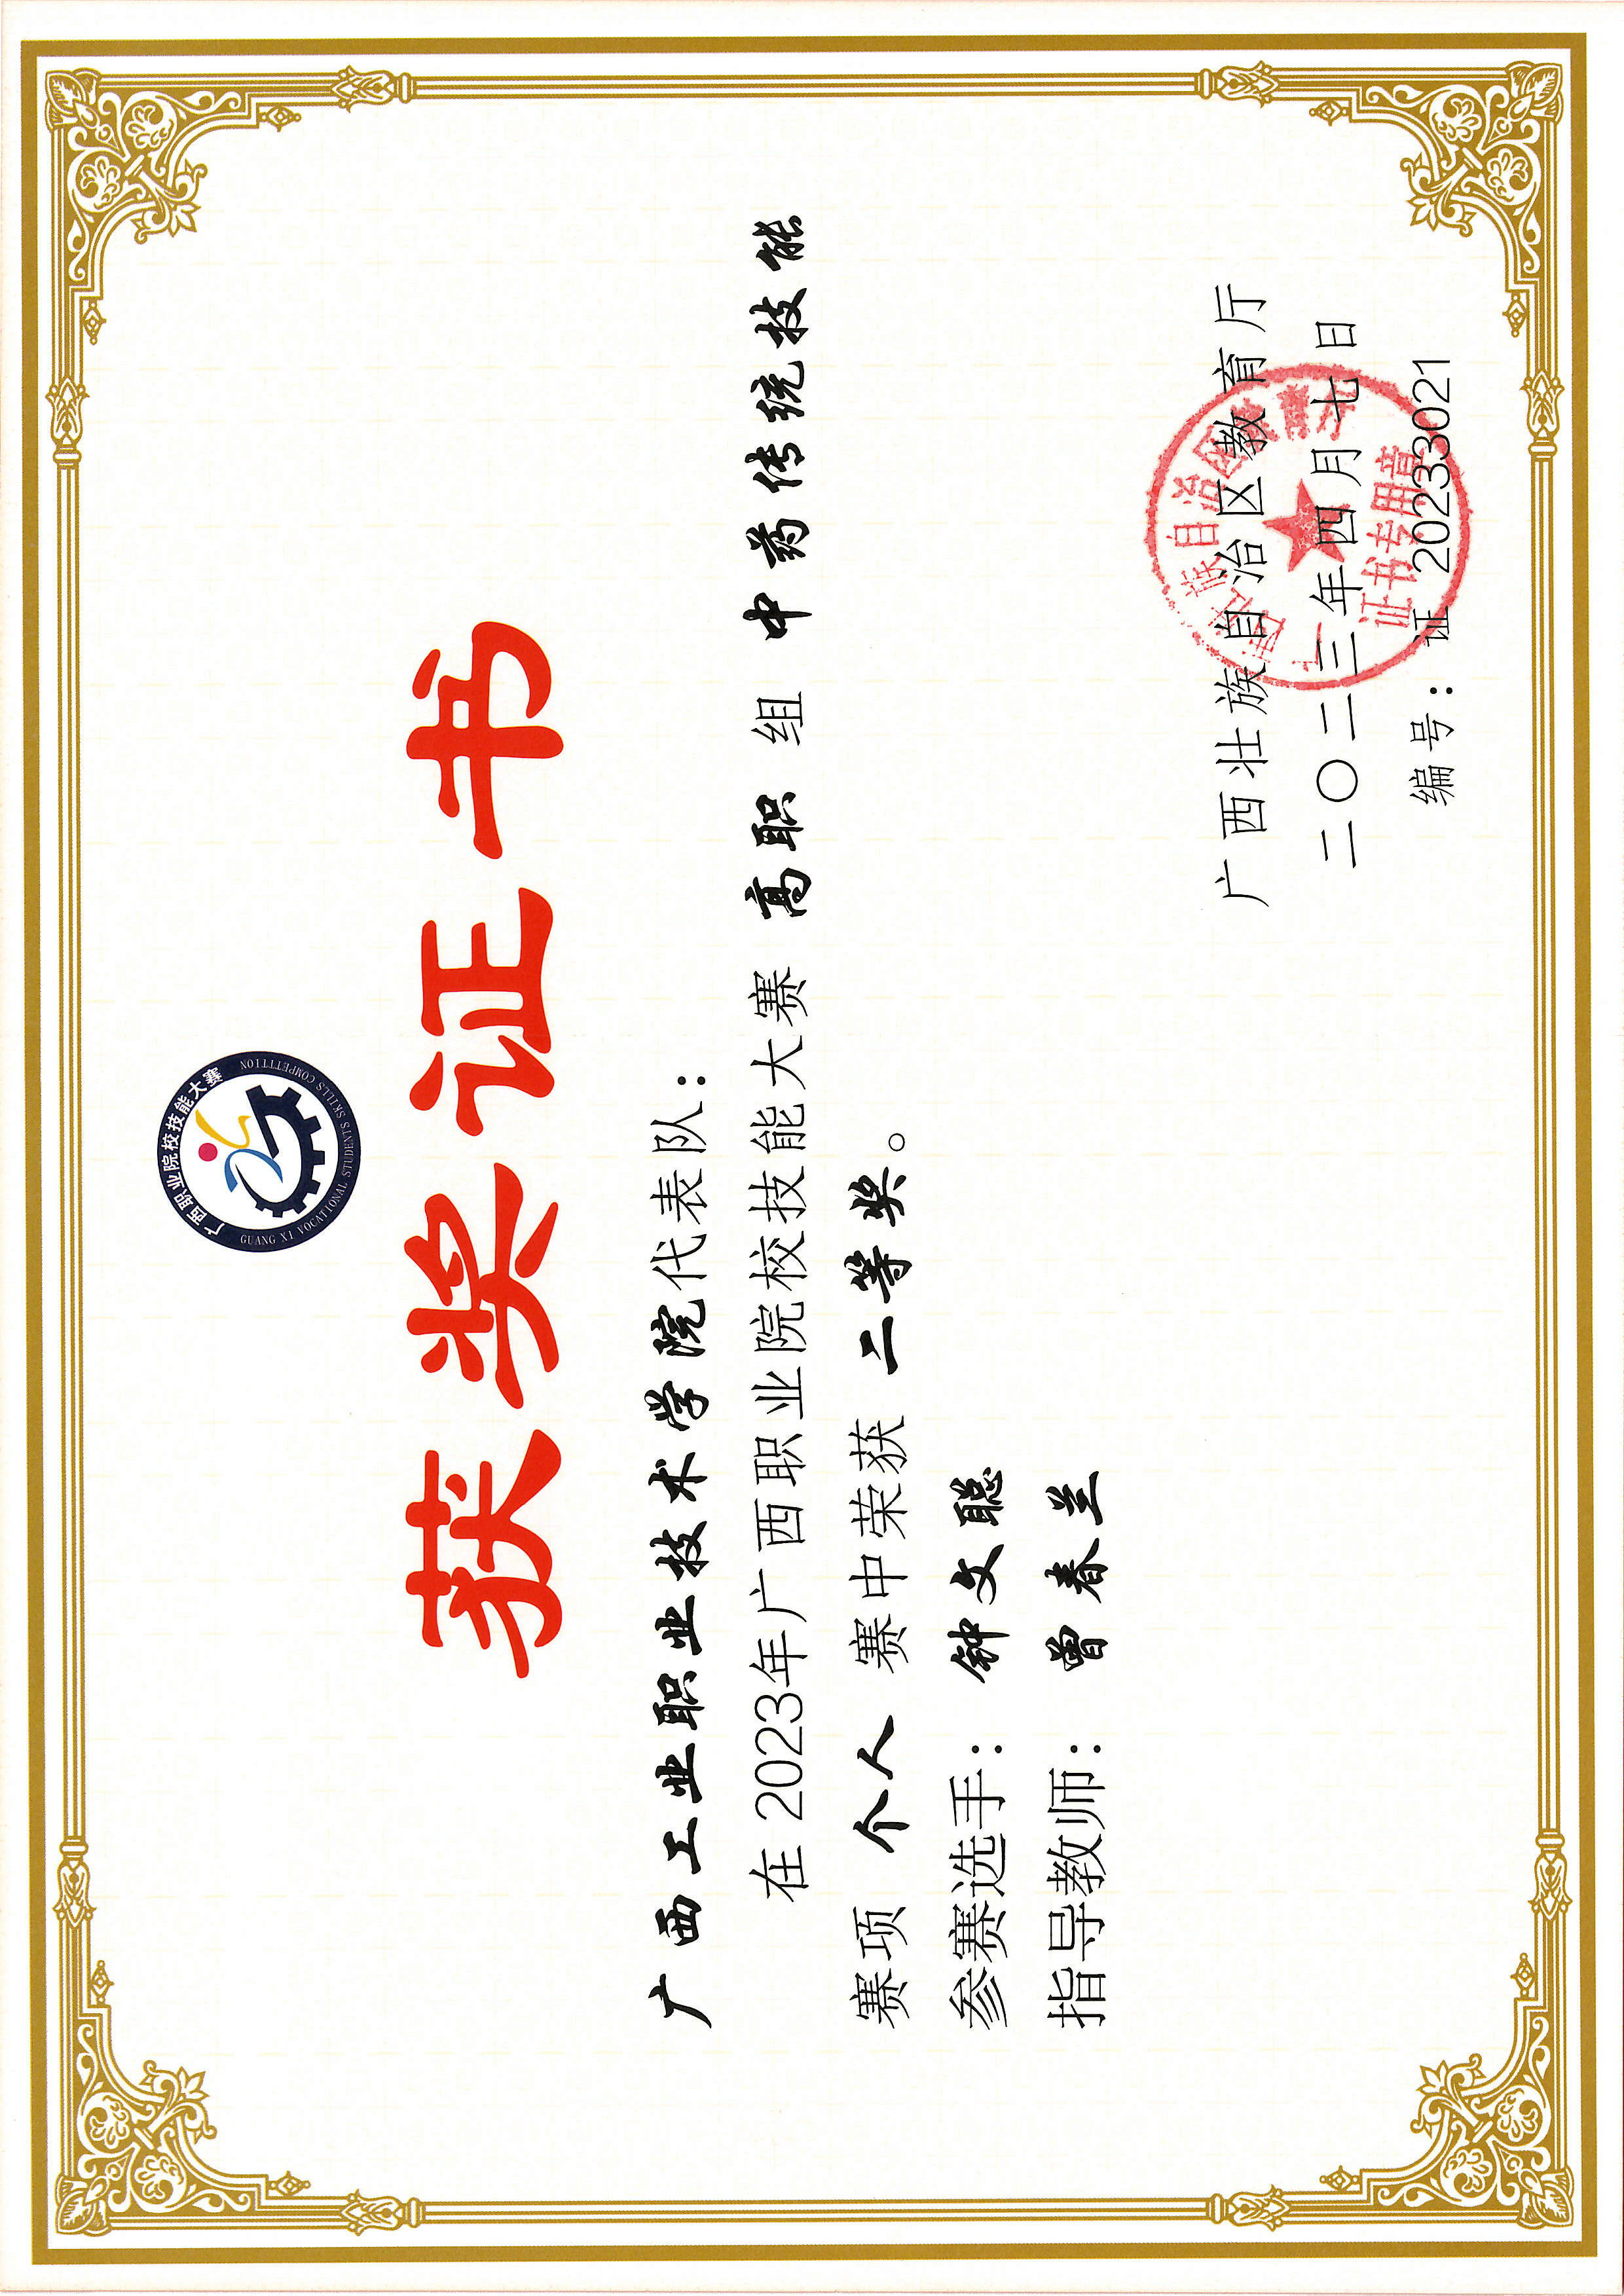 广西职业院校技能大赛
GUANG XI VOCATIONAL STUDENTS SKILLS COMPETITION
获奖证书
广西工业职业技术学院代表队：
在2023年广西职业院校技能大赛 高职 组 中药传统技能
赛项 个人 赛中荣获 二等奖。
参赛选手： 钟文聪
指导教师： 曾春兰
广西壮族自治区教育厅
二〇二三年四月七日
编号：证 20233021
证书专用章